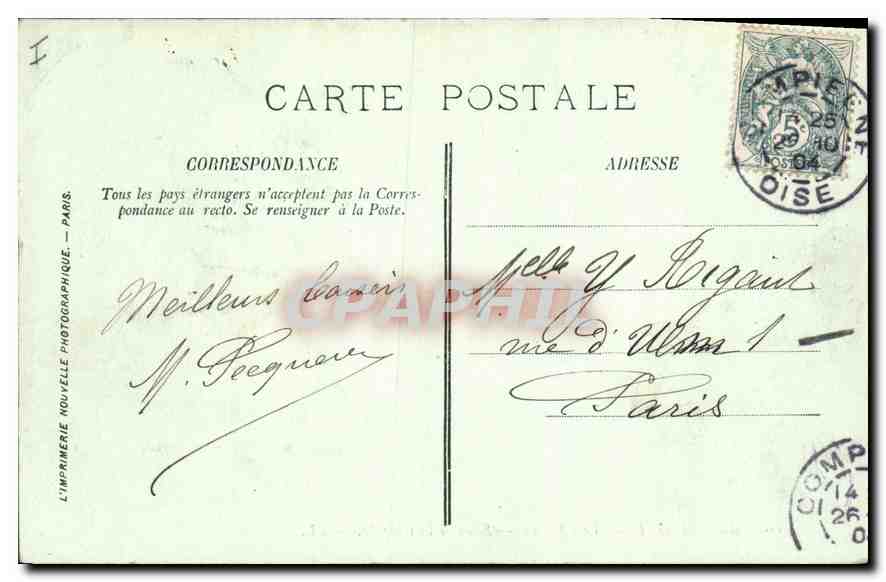 I
CARTE POSTALE
CORRESPONDANCE
Tous les pays étrangers n'acceptent pas la Corres-
pondance au recto. Se renseigner à la Poste.
Meilleurs baisers
M. Pecqueur
L'IMPRIMERIE NOUVELLE PHOTOGRAPHIQUE. — PARIS.
ADRESSE
Melle Y Rigaut
rue d'Ulm 1
Paris
COMPIEGNE
25
29 10
04
OISE
5
POSTES
COMPI
14
26
0
CPAPHIL